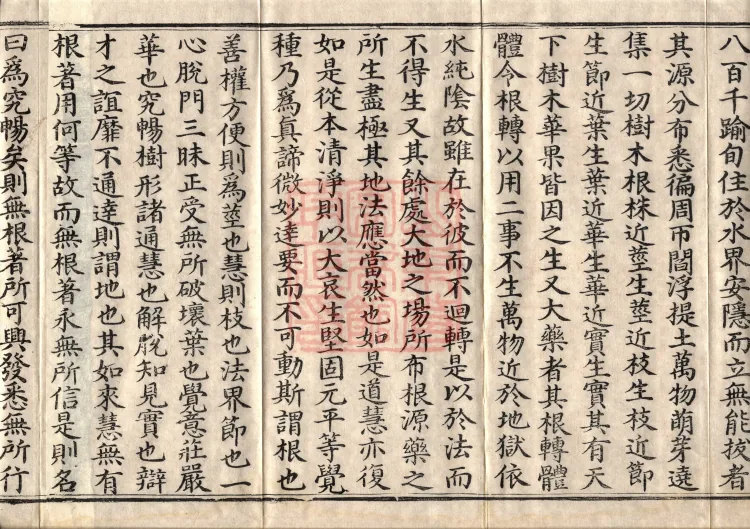 八百千踰旬住於水界安隱而立無能拔者
其源分布悉徧周帀閻浮提土萬物萌芽遶
集一切樹木根株近莖生莖近枝生枝近節
生節近葉生葉近華生華近實生實其有天
下樹木華果皆因之生又大藥者其根轉體
體令根轉以用二事不生萬物近於地獄依
水純陰故雖在於彼而不迴轉是以於法而
不得生又其餘處大地之場所布根源藥之
所生盡極其地法應當然也如是道慧亦復
如是從本清淨則以大哀生堅固元平等覺
種乃爲眞諦微妙達要而不可動斯謂根也
善權方便則爲莖也慧則枝也法界節也一
心脫門三昧正受無所破壞葉也覺意莊嚴
華也究暢樹形諸通慧也解脫知見實也辯
才之誼靡不通達則謂地也其如來慧無有
根著用何等故而無根著永無所信是則名
曰爲究暢矣則無根著所可興發悉無所行